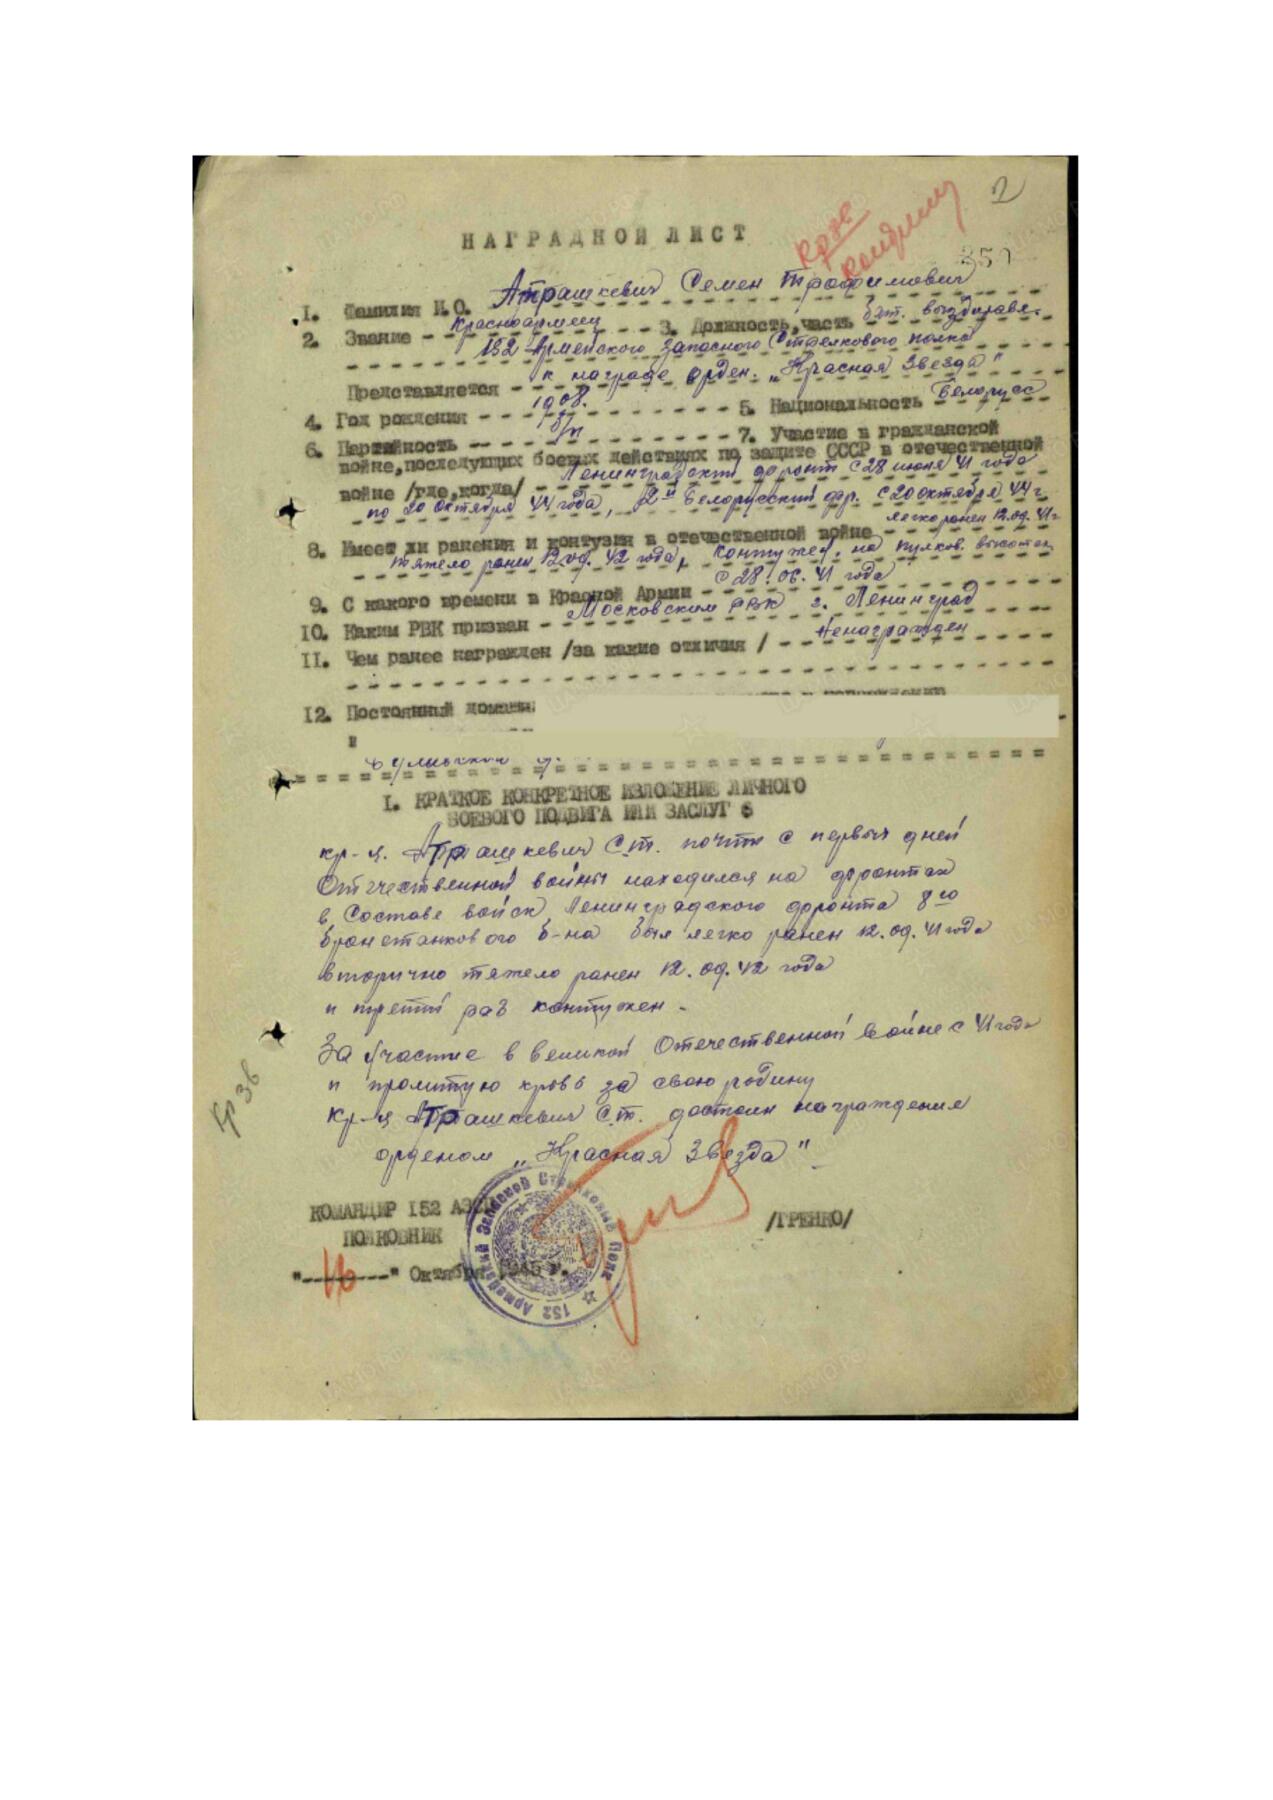 2
НАГРАДНОЙ ЛИСТ
350
1. Фамилия И.О. Атрашкевич Семен Трофимович
2. Звание - Красноармеец - 3. Должность, часть бат. выздоравл.
152 Армейского Запасного Стрелкового полка
Представляется - к награде орден. „Красная Звезда"
4. Год рождения - 1908. - 5. Национальность Белорусс
6. Партийность - б/п - 7. Участие в гражданской
войне, последующих боевых действиях по защите СССР в отечественной
войне /где, когда/ - Ленинградский фронт с 28 июня 41 года
по 20 октября 44 года, 2й Белорусский фр. с 20 октября 44 г.
8. Имеет ли ранения и контузия в отечественной войне - легко ранен 12.09.41г
тяжело ранен 12.09.42 года, контужен, на пулков. высотах
9. С какого времени в Красной Армии - с 28.06.41 года
10. Каким РВК призван - Московским РВК г. Ленинград
11. Чем ранее награжден /за какие отличия / - Ненагражден
12. Постоянный домашн
и
I. КРАТКОЕ КОНКРЕТНОЕ ИЗЛОЖЕНИЕ ЛИЧНОГО
БОЕВОГО ПОДВИГА ИЛИ ЗАСЛУГ
кр-ц. Атрашкевич С.т. почти с первых дней
Отечественной войны находился на фронтах
в составе войск Ленинградского фронта 8го
бронетанкового б-на был легко ранен 12.09.41 года
вторично тяжело ранен 12.09.42 года
и третий раз контужен -
За участие в великой Отечественной войне с 41 года
и пролитую кровь за свою родину
Кр-ц Атрашкевич С.т. достоин награждения
орденом „Красная Звезда"
КОМАНДИР 152 АЗСП
ПОЛКОВНИК
/ГРЕНКО/
"16" Октября 1945 г.
152 Армейский Запасной Стрелковый Полк